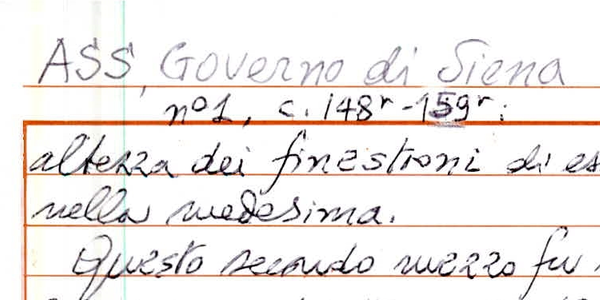 ASS, Governo di Siena
nº1, c. 148r-159r:
altezza dei finestroni di es
nella medesima.
Questo secondo mezzo fu